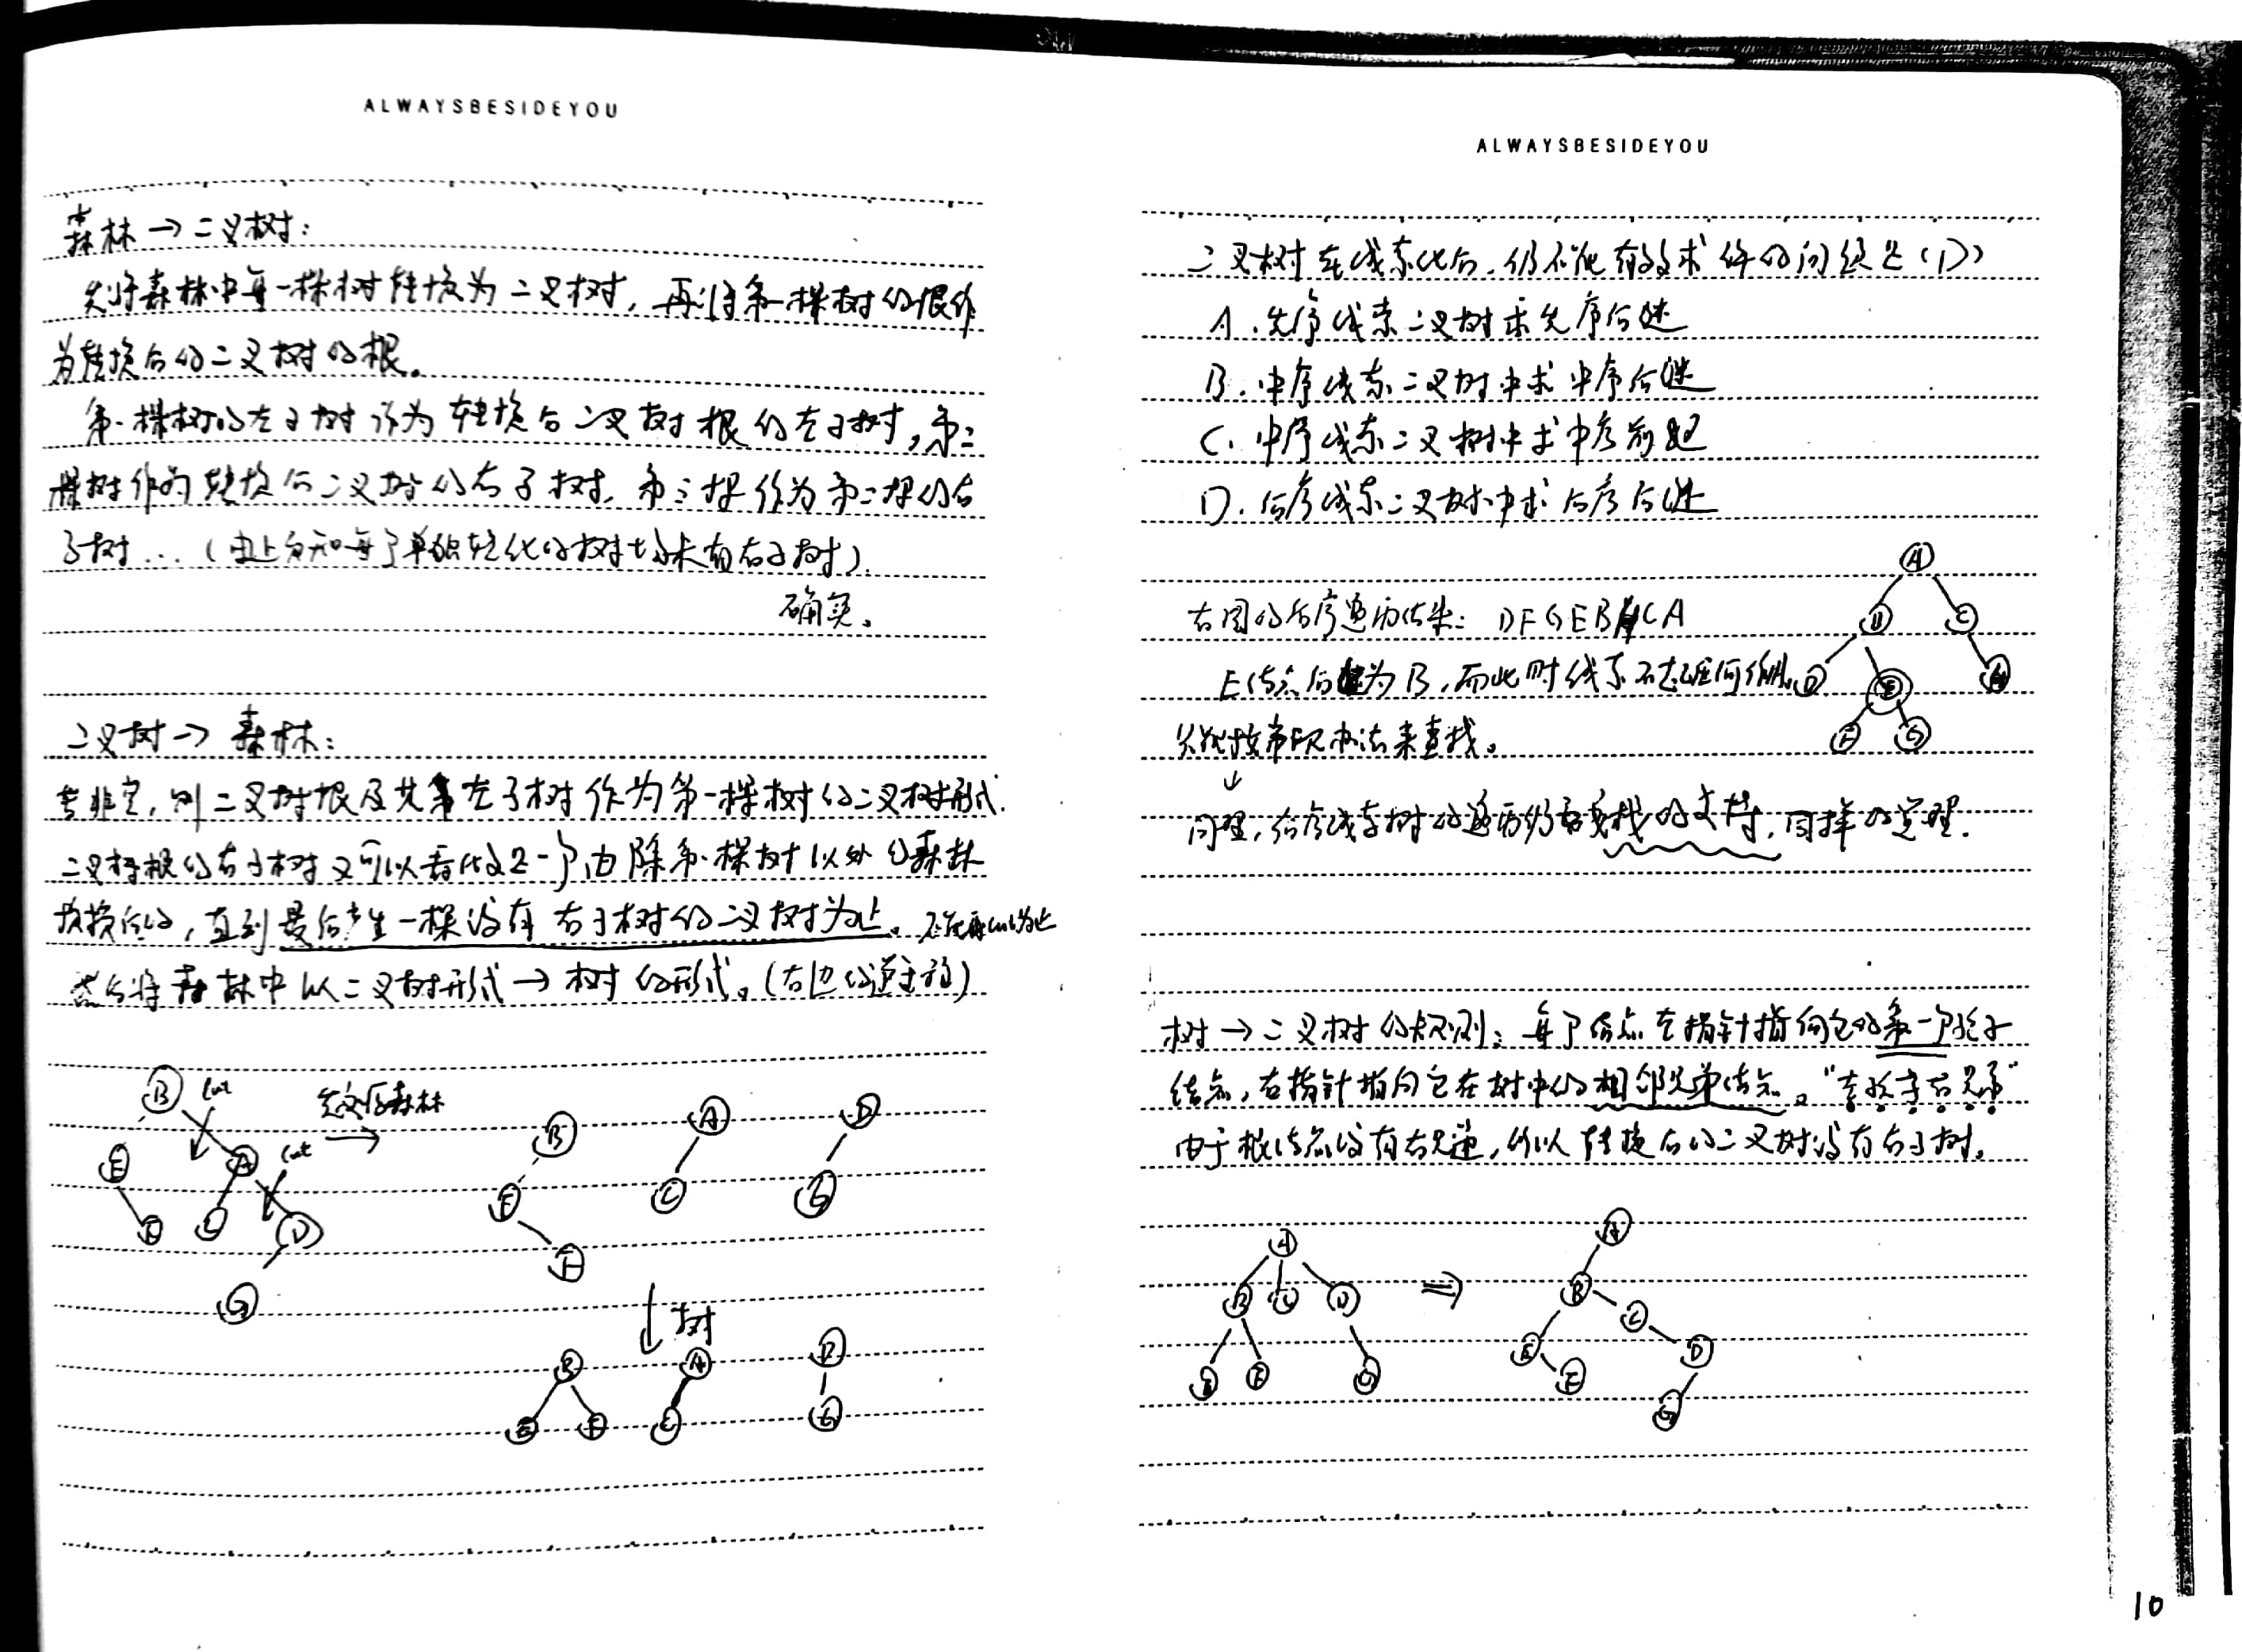 ALWAYSBESIDEYOU
森林→二叉树：
先将森林中每一棵树转换为二叉树，再将第一棵树的根作
为转换后的二叉树的根。
第一棵树的左子树作为转换后二叉树根的左子树，第二
棵树作为转换后二叉树的右子树，第三棵作为第二棵的右
子树…（由上知每个单独转化的树均未有右子树）
确实。
二叉树→森林：
若非空，则二叉树根及其左子树作为第一棵树的二叉树形式.
二叉树根的右子树又可以看作是一个由除第一棵树以外的森林
转换后的，直到最后产生一棵没有右子树的二叉树为止。不能再cut为止
然后将森林中从二叉树形式→树的形式。（右边的逆过程）
B cut
E A cut
F C D
G
先变为森林
B A D
E C G
F
树
B A D
E F C G
ALWAYSBESIDEYOU
二叉树在线索化后，仍不能有效求解的问题是（D）
A．先序线索二叉树求先序后继
B．中序线索二叉树中求中序后继
C．中序线索二叉树中求中序前驱
D．后序线索二叉树中求后序后继
右图的后序遍历结果：DFGEBHCA
E结点后继为B，而此时线索不起任何作用。
只能按常规办法来查找。
↓
同理，后序线索树的遍历仍需要栈的支持，同样的道理.
A
B C
D E H
F G
树→二叉树的规则：每个结点左指针指向它的第一个孩子
结点，右指针指向它在树中的相邻兄弟结点。“左孩子右兄弟”
由于根结点没有右兄弟，所以转换后的二叉树没有右子树。
A
B C D
E F G
⇒
A
B
C
E D
F
G
10